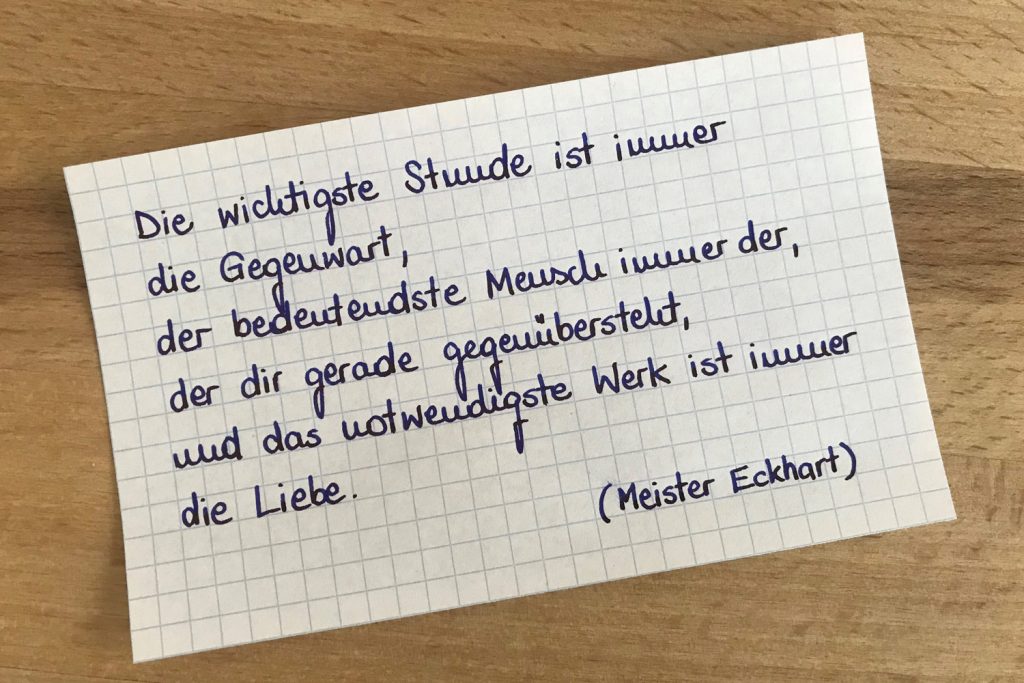 Die wichtigste Stunde ist immer
die Gegenwart,
der bedeutendste Mensch immer der,
der dir gerade gegenübersteht,
und das notwendigste Werk ist immer
die Liebe.
(Meister Eckhart)